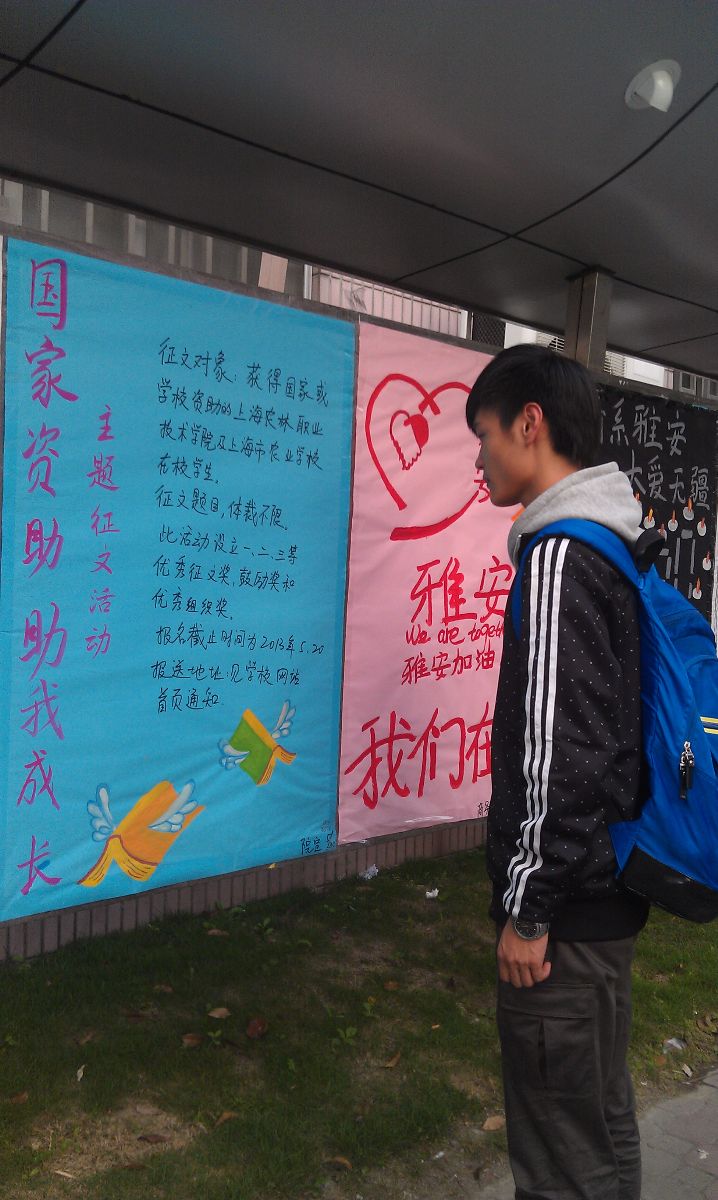 国家资助 助我成长
主题征文活动
征文对象：获得国家或
学校资助的上海农林职业
技术学院及上海市农业学校
在校学生.
征文题目,体裁不限.
此活动设立一、二、三等
优秀征文奖,鼓励奖和
优秀组织奖.
报名截止时间为2013年5.20
报送地址:见学校网站
首页通知.
院宣
雅安
We are togeth
雅安加油
我们在
系雅安
大爱无疆